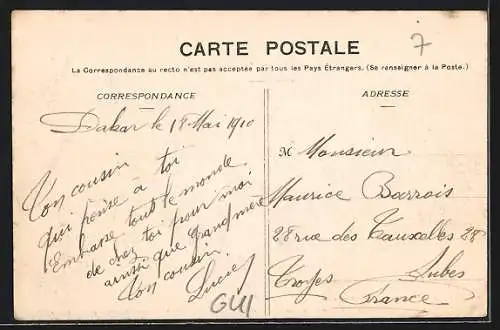 CARTE POSTALE
7
La Correspondance au recto n'est pas acceptée par tous les Pays Étrangers. (Se renseigner à la Poste.)
CORRESPONDANCE
Dakar le 18 Mai 1910
Ton cousin
qui pense à toi
Embrasse tout le monde
de chez toi pour moi
ainsi que grand mère
Ton cousin
Lucien
GUI
ADRESSE
M Monsieur
Maurice Barrois
28 rue des Tauxelles 28
Troyes Aubes
France